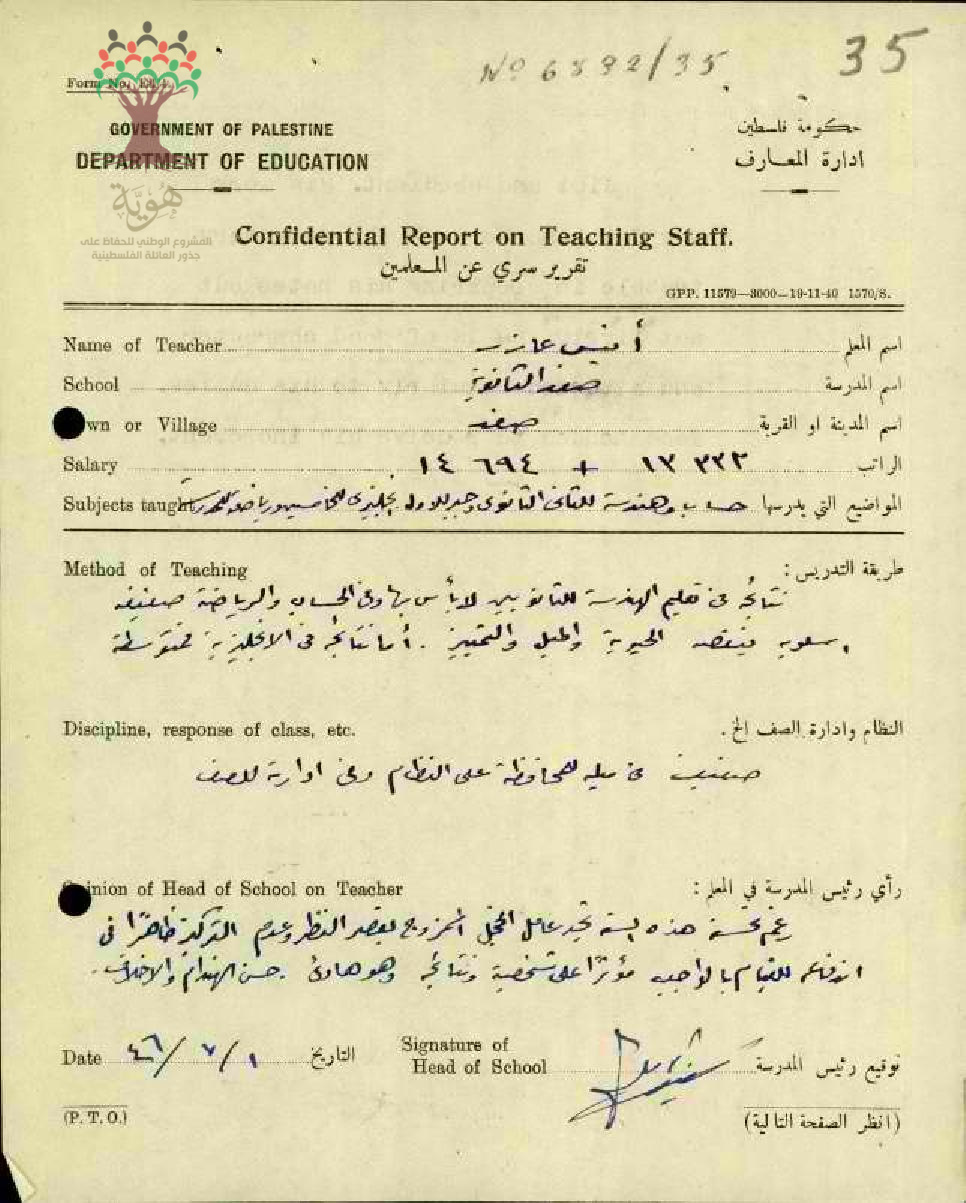 35
No 6832/35
Form No. Ed/4.
GOVERNMENT OF PALESTINE
حكومة فلسطين
DEPARTMENT OF EDUCATION
ادارة المعارف
هُوِيَّة
المشروع الوطني للحفاظ على
جذور العائلة الفلسطينية
Confidential Report on Teaching Staff.
تقرير سري عن المعلمين
GPP. 11579—3000—19-11-40 1570/S.
Name of Teacher أنيس عازر اسم المعلم
School صفد الثانوية اسم المدرسة
Town or Village صفد اسم المدينة او القرية
Salary ١٤ ٦٩٤ + ١٣ ٣٣٢ الراتب
Subjects taught حساب وهندسة للثاني الثانوي وجبر للاول انجليزي للخامس ورياضة للمدرسة المواضيع التي يدرسها
Method of Teaching طريقة التدريس :
نتائجه في تعليم الهندسة للثانويين لا بأس بها وفي الحساب والرياضة ضعيفة
اسلوبه ينقصه الحيوية والميل والتمييز . أما نتائجه في الانجليزية فمتوسطة
Discipline, response of class, etc. النظام وادارة الصف الخ .
ضعيف في ميله للمحافظة على النظام وفي ادارته للصف
Opinion of Head of School on Teacher رأي رئيس المدرسة في المعلم :
رغم تحسنه هذه السنة تجد عامل الخجل الممزوج بقصر النظر وعدم التركيز ظاهرًا في
اندفاعه للقيام بالواجب مؤثرًا على شخصيته ونتائجه وهو هادئ . حسن الهندام والاخلاق .
Date ١ / ٧ / ٤٦ التاريخ
Signature of
Head of School توقيع رئيس المدرسة
(P. T. O.) (انظر الصفحة التالية)